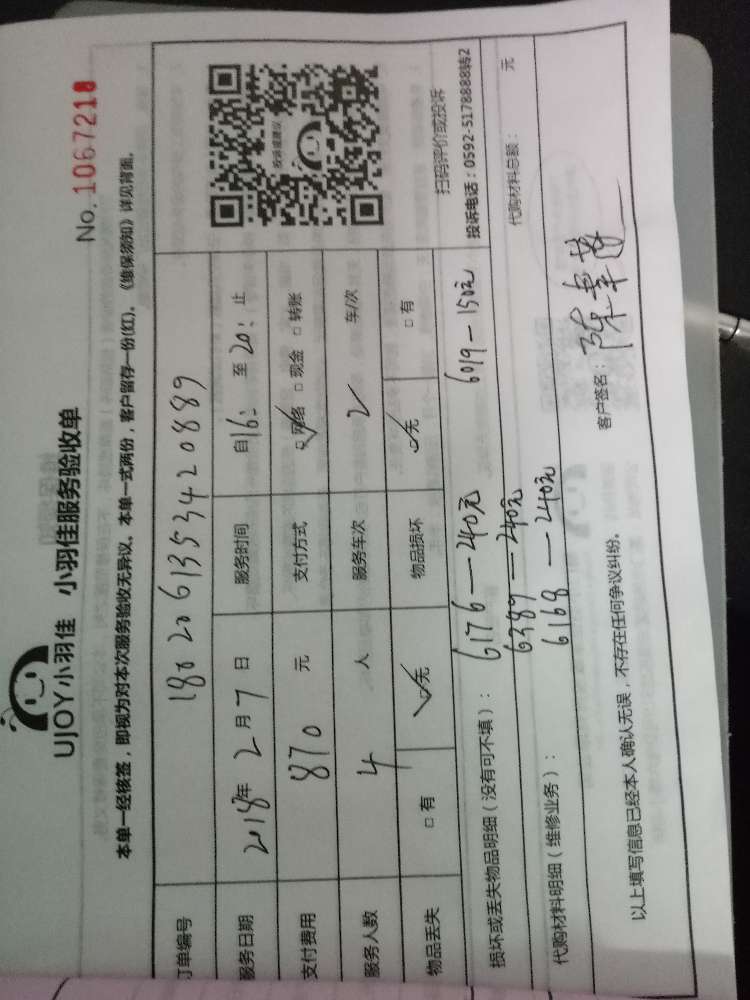 UJOY小羽佳 小羽佳服务验收单
No. 1067218
本单一经核签，即视为对本次服务验收无异议。本单一式两份，客户留存一份(红)。《维保须知》详见背面。
订单编号 180206135342 0889
服务日期 2018年 2月7日 服务时间 自16: 至20: 止
支付费用 870 元 支付方式 □网络 □现金 □转账
服务人数 4 人 服务车次 2 车/次
物品丢失 □有 □无 物品损坏 □无 □有
投诉或建议
扫码评价或投诉
投诉电话：0592-5178888转2
损坏或丢失物品明细（没有可不填）： 6176—240元 6019—150元
6389—240元
代购材料明细（维修业务）： 6168—240元 代购材料总额： 元
以上填写信息已经本人确认无误，不存在任何争议纠纷。 客户签名：